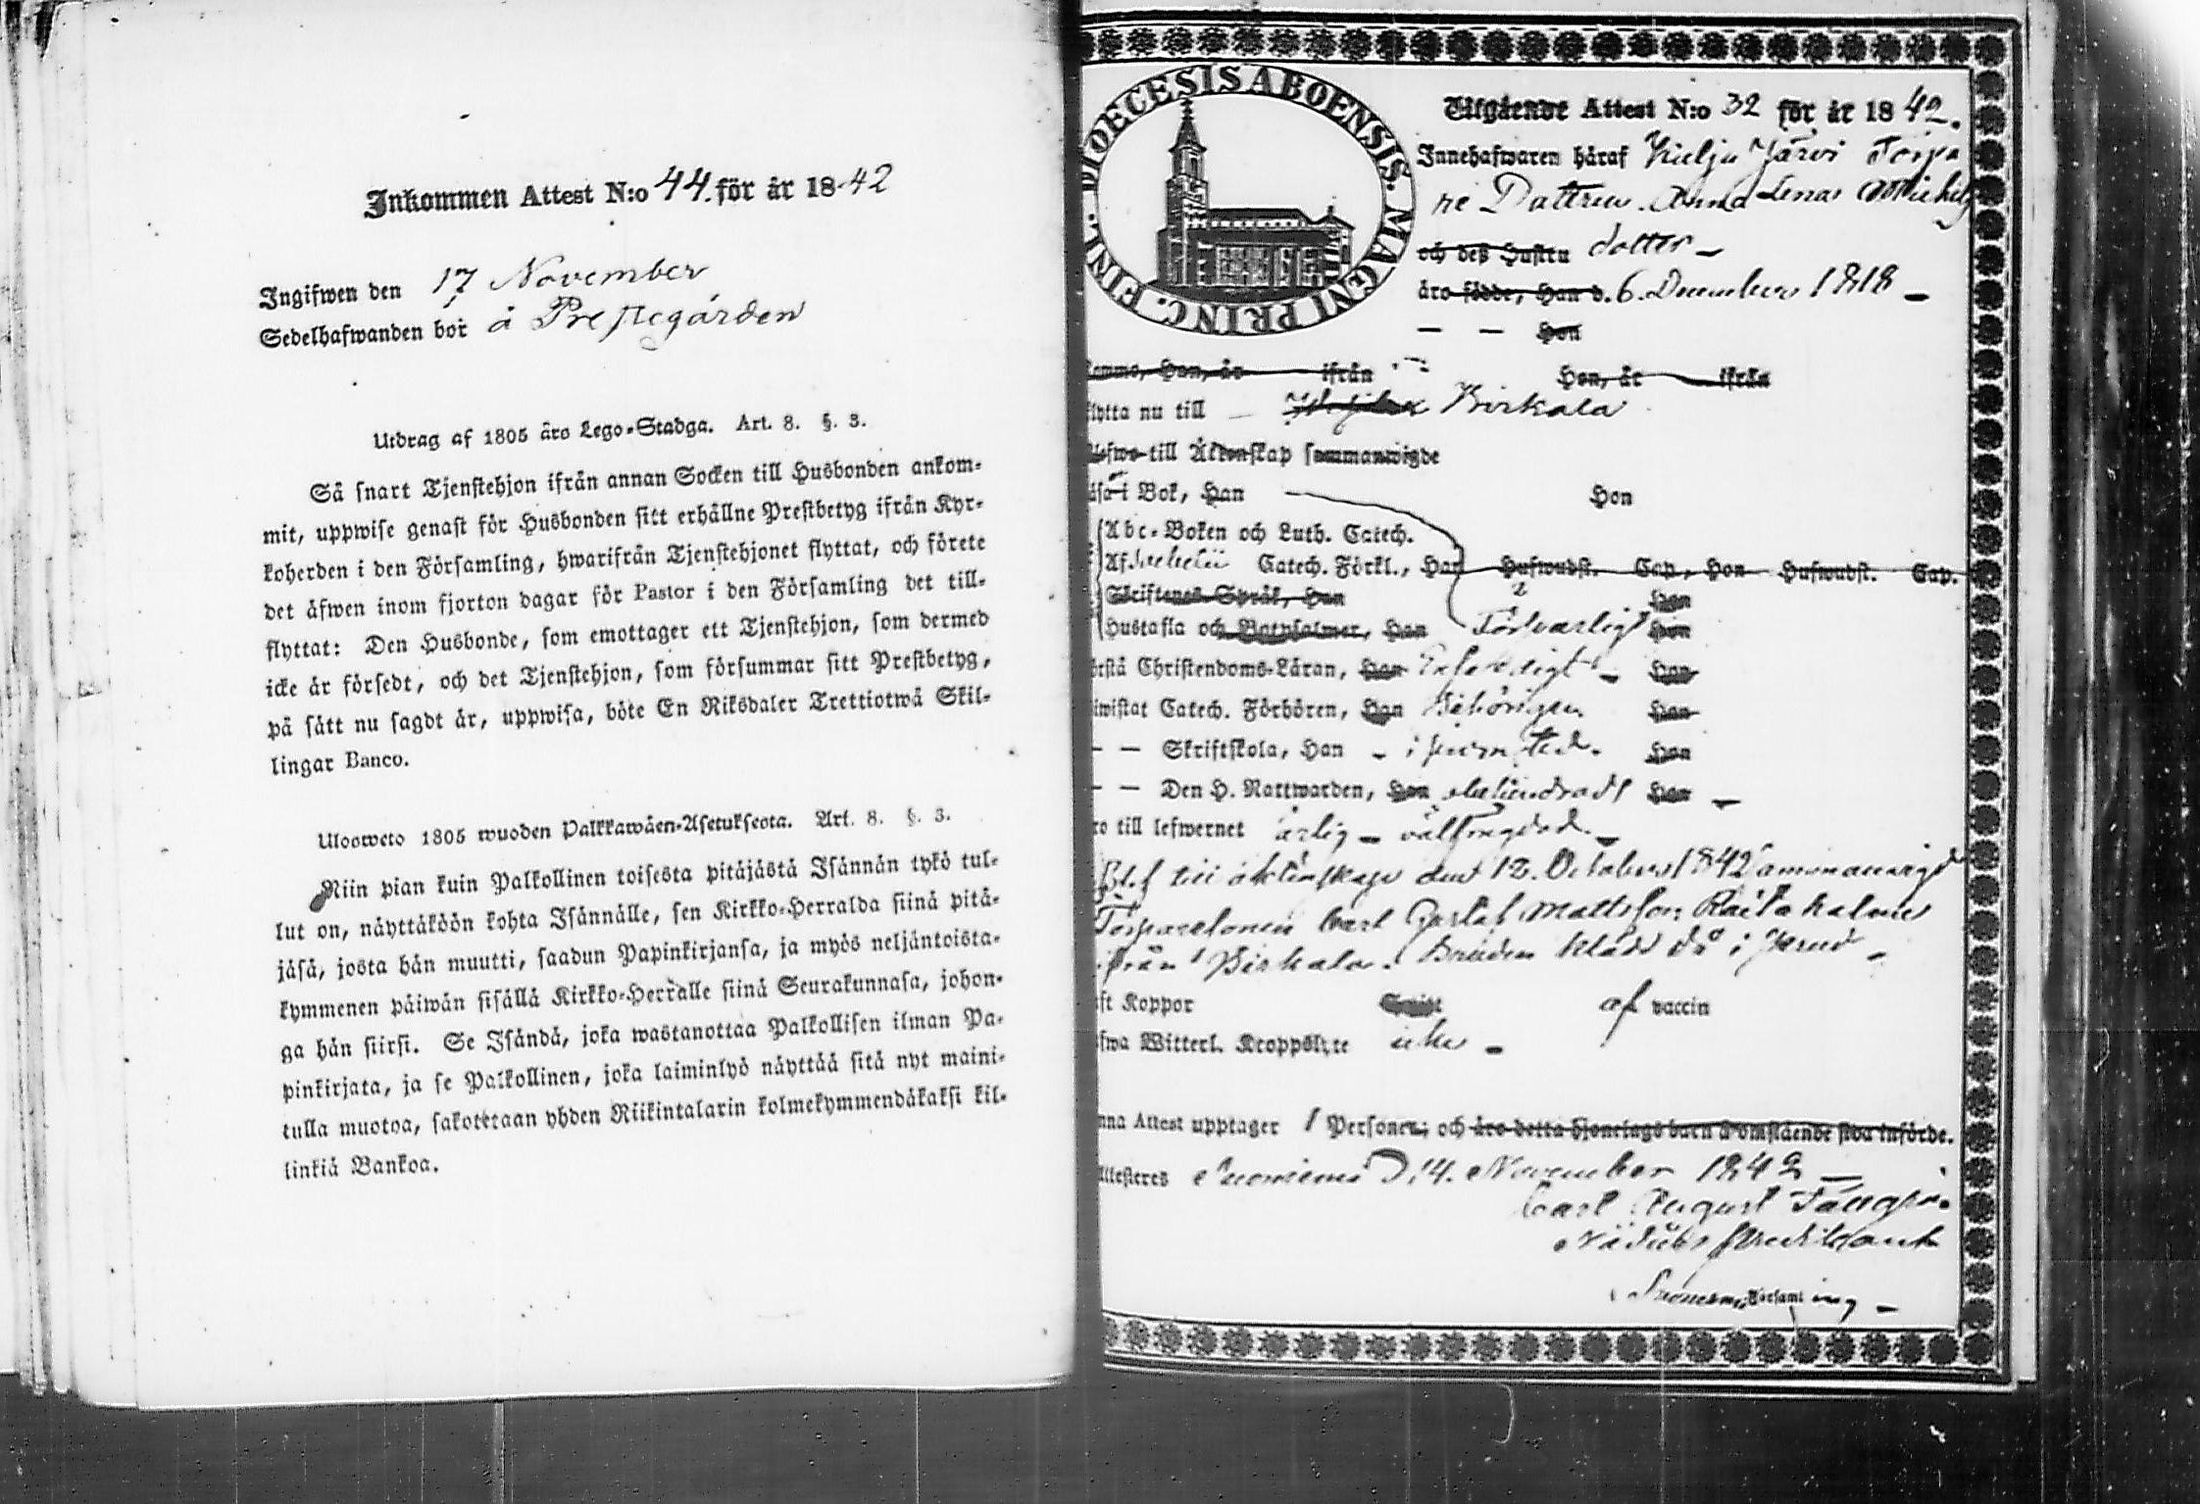 Inkommen Attest N:o 44. för år 18-42
Ingifwen den 17 November
Sedelhafwanden bor å Prestegården
Utdrag af 1805 års Lego-Stadga. Art. 8. §. 3.
Så snart Tjenstehjon ifrån annan Socken till Husbonden ankom-
mit, uppwise genast för Husbonden sitt erhållne Prestbetyg ifrån Kyr-
koherden i den Församling, hwarifrån Tjenstehjonet flyttat, och förete
det äfwen inom fjorton dagar för Pastor i den Församling det till-
flyttat: Den Husbonde, som emottager ett Tjenstehjon, som dermed
icke är försedt, och det Tjenstehjon, som försummar sitt Prestbetyg,
på sätt nu sagdt är, uppwisa, böte En Riksdaler Trettiotwå Skil-
lingar Banco.
Ulosweto 1805 wuoden Palkkawäen-Asetuksesta. Art. 8. §. 3.
Niin pian kuin Palkollinen toisesta pitäjästä Isännän tykö tul-
lut on, näyttäköön kohta Isännälle, sen Kirkko-Herralda siinä pitä-
jäsä, josta hän muutti, saadun Papinkirjansa, ja myös neljäntoista-
kymmenen päiwän sisällä Kirkko-Herralle siinä Seurakunnasa, johon-
ga hän siirsi. Se Isändä, joka wastanottaa Palkollisen ilman Pa-
pinkirjata, ja se Palkollinen, joka laiminlyö näyttää sitä nyt maini-
tulla muotoa, sakotetaan yhden Riikintalarin kolmekymmendäkaksi kil-
linkiä Bankoa.
DIOECESIS ABOENSIS. MAGNI PRINC. FINL.
Utgående Attest N:o 32 för år 18 42.
Innehafwaren häraf Järvi Torpa
re Dottren Anna Lena Michels
och deß Hustru dotter –
äro födde, Han d. 6. December 1818 –
– – Hon
Han, år ifrån Hon, år ifrån
flytta nu till – Birkala
till Äktenskap sammanwigde
i Bok, Han Hon
Abc-Boken och Luth. Catech.
Af Catech. Förkl., Han Hufwudst. Cap., Hon Hufwudst. Cap.
Skriftenes Språk, Han Hon
Hustafla och Botpsalmer, Han Försvarligt Hon
Christendoms-Läran, Han Hon
Catech. Förhören, Han Behörigen Hon
– – Skriftskola, Han – i sin tid. Hon
– – Den H. Nattwarden, Han Hon –
till lefwernet ärlig – välfrägdad. –
till äktenskap den 12. October 1842 sammanvigd
Torparesonen Carl Gustaf Mattsson
ifrån Birkala. Bruden klädd då i
Koppor af vaccin
Witterl. Kroppslyte icke –
Attest upptager 1 Personer; och äro detta hjonelags barn å omstående sida införde.
Attesteras Suoniemi D. 14. November 1842 –
Carl August
Församling –